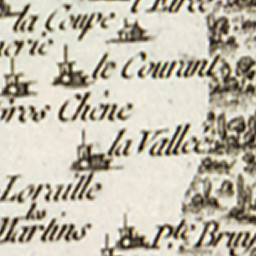 la Coupe
le Courant
Chêne
la Valleé
Loraille
les
Martins
P.te Bruy